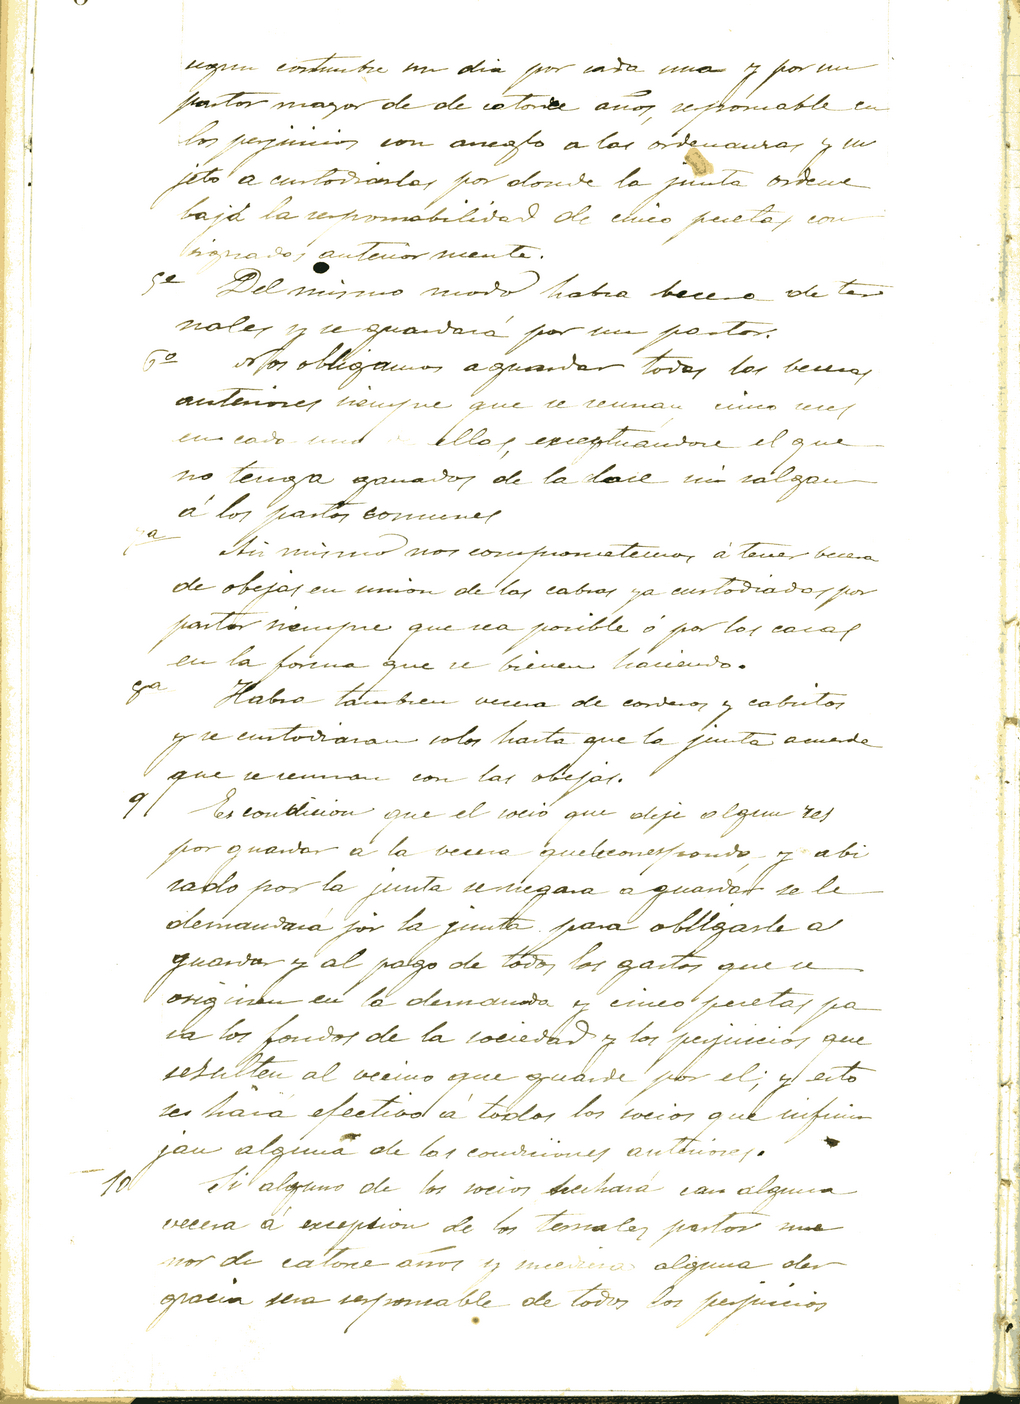 segun costumbre un dia por cada una y por un
pastor mayor de de catorce años, responsable en
los perjuicios con areglo a las ordenanzas y su
jeto a custodiarlas por donde la junta ordene
bajo la responsabilidad de cinco pesetas con
signados anteriormente.
5ª Del mismo modo habra becera de ter
nales y se guardará por un pastor.
6º Nos obligamos a guardar todas las beceras
anteriores siempre que se reunan cinco reses
en cada una de ellas, exceptuándose el que
no tenga ganados de la clase ni salgan
á los pastos comunes
7ª Asi mismo nos comprometemos á tener becera
de obejas en unión de las cabras ya custodiadas por
pastor siempre que sea posible ó por las casas
en la forma que se bienen haciendo.
8ª Habra tambien vecera de corderos y cabritos
y se custodiaran solos hasta que la junta acuerde
que se reunan con las obejas.
9 Es condicion que el socio que deje algun res
por guardar a la vecera que le corresponda, y abi
sado por la junta se negara a guardar se le
demandará por la junta para obligarle a
guardar y al pago de todos los gastos que se
originen en la demanda y cinco pesetas pa
ra los fondos de la sociedad y los perjuicios que
resulten al vecino que guarde por el; y esto
se hará efectivo á todos los socios que infrin
jan alguna de las condiciones anteriores.
10 Si alguno de los socios hechará can alguna
vecera á excepsion de los ternales pastor me
nor de catorce años y alguna des
gracia sera responsable de todos los perjuicios